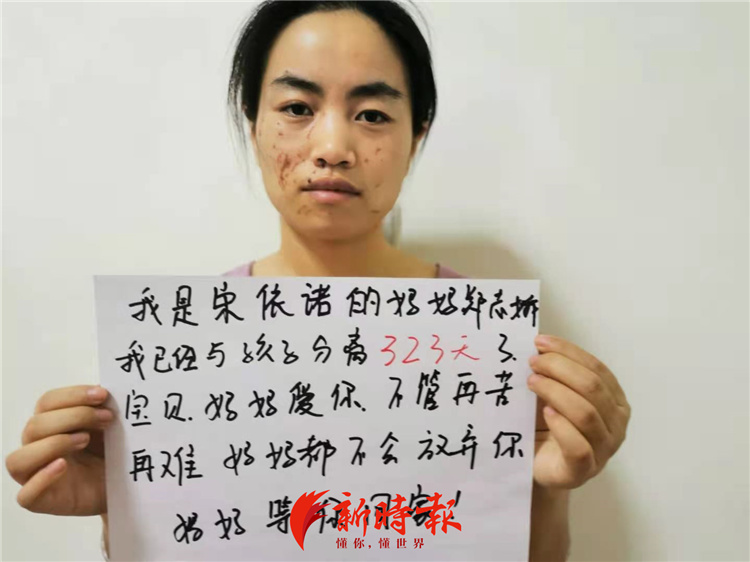 我是宋依诺的妈妈郑志娇
我已经与孩子分离323天了、
宝贝、妈妈爱你、不管再苦
再难 妈妈都不会放弃你
妈妈等你回家!
新時報
懂你,懂世界